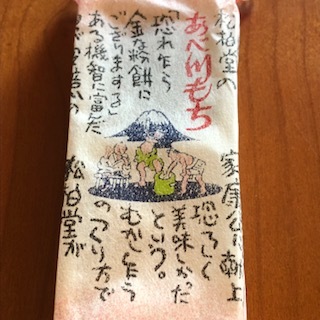 松柏堂の
あべ川もち
「恐れ乍ら
金な粉餅に
ござりまする」
ある機智に富んだ
家康公に献上
恐ろしく
美味しかった
という。
むかし乍ら
のつくり方で
松柏堂が